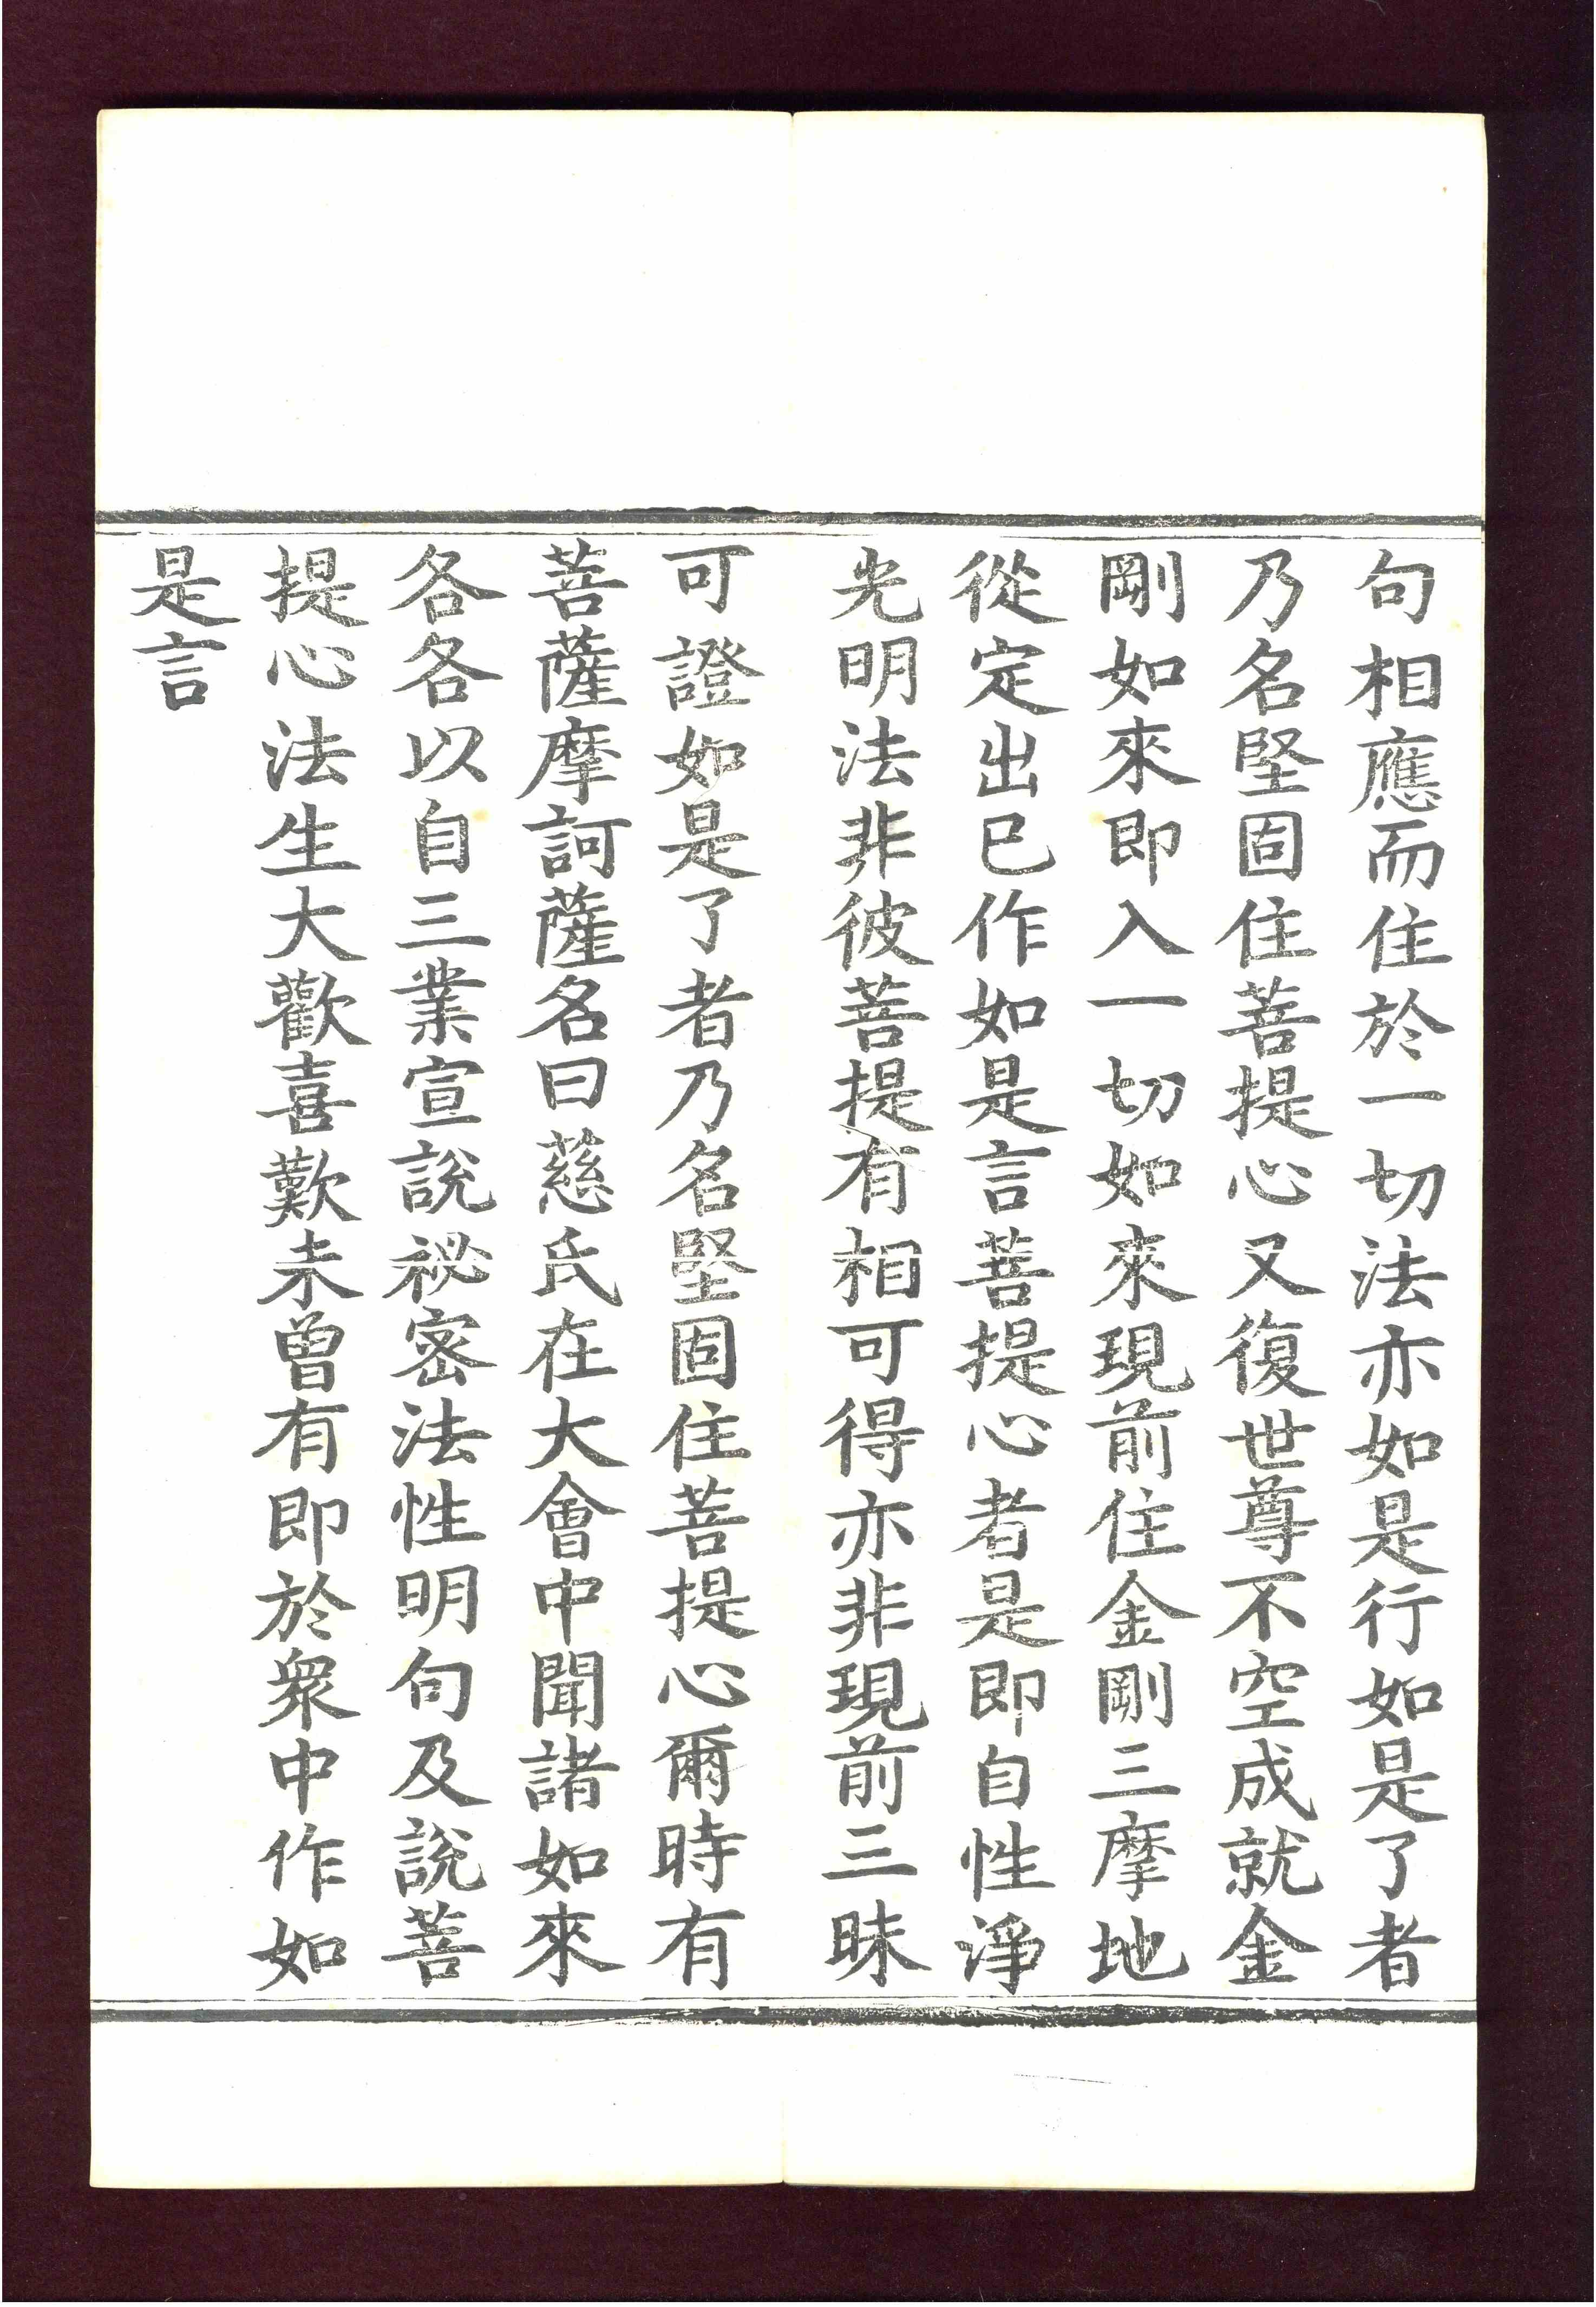 句相應而住於一切法亦如是行如是了者
乃名堅固住菩提心又復世尊不空成就金
剛如來即入一切如來現前住金剛三摩地
從定出已作如是言菩提心者是即自性淨
光明法非彼菩提有相可得亦非現前三昧
可證如是了者乃名堅固住菩提心爾時有
菩薩摩訶薩名曰慈氏在大會中聞諸如來
各各以自三業宣說祕密法性明句及說菩
提心法生大歡喜歎未曾有即於衆中作如
是言